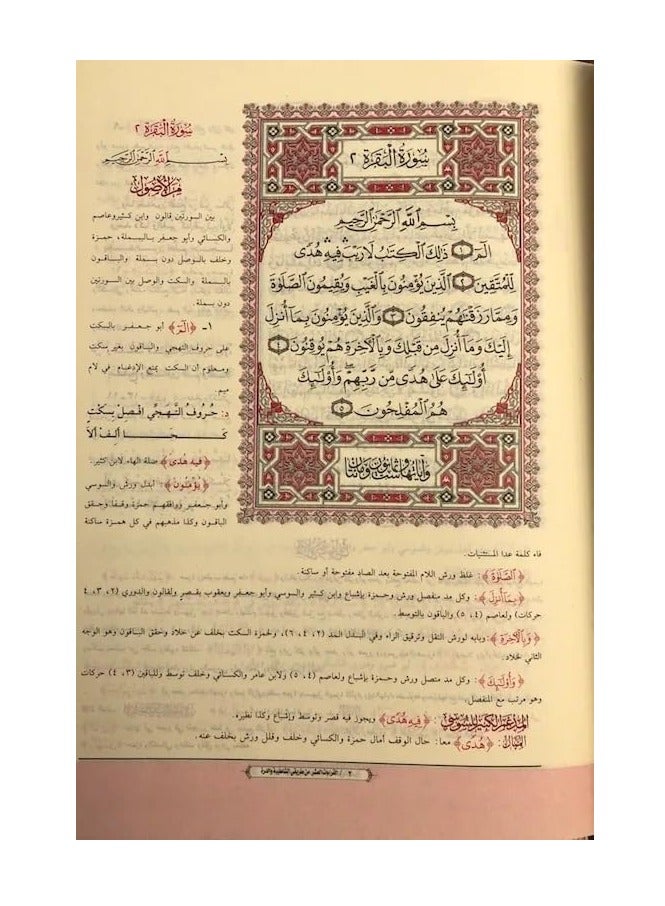 سُورَةُ الْبَقَرَةِ ٢
بِسْمِ اللَّهِ الرَّحْمَٰنِ الرَّحِيمِ
الٓمٓ ۝١ ذَٰلِكَ الْكِتَٰبُ لَا رَيْبَ ۛ فِيهِ ۛ هُدًى
لِّلْمُتَّقِينَ ۝٢ الَّذِينَ يُؤْمِنُونَ بِالْغَيْبِ وَيُقِيمُونَ الصَّلَوٰةَ
وَمِمَّا رَزَقْنَٰهُمْ يُنفِقُونَ ۝٣ وَالَّذِينَ يُؤْمِنُونَ بِمَا أُنزِلَ
إِلَيْكَ وَمَا أُنزِلَ مِن قَبْلِكَ وَبِالْآخِرَةِ هُمْ يُوقِنُونَ ۝٤
أُولَٰئِكَ عَلَىٰ هُدًى مِّن رَّبِّهِمْ ۖ وَأُولَٰئِكَ
هُمُ الْمُفْلِحُونَ ۝٥
وآياتها ست وثمانون ومائتان
سُورَةُ الْبَقَرَةِ ٢
بِسْمِ اللَّهِ الرَّحْمَٰنِ الرَّحِيمِ
مِنَ الأُصُول
بين السورتين قالون وابن كثير وعاصم
والكسائي وأبو جعفر بالبسملة، حمزة
وخلف بالوصل دون بسملة والباقون
بالبسملة والسكت والوصل بين السورتين
دون بسملة.
١- ﴿الٓمٓ﴾ أبو جعفر بالسكت
على حروف التهجي والباقون بغير سكت
ومعلوم أن السكت يمنع الإدغام في لام
ميم.
د: حُرُوفُ التَّهَجِّي افْصِلْ بِسَكْتٍ
كَحَا أَلِفْ أَلاَ
﴿فِيهِ هُدًى﴾ صلة الهاء لابن كثير.
﴿يُؤْمِنُونَ﴾ أبدل ورش والسوسي
وأبو جعفر ووافقهم حمزة وقفاً وحقق
الباقون وكذا مذهبهم في كل همزة ساكنة
فاء كلمة عدا المستثنيات.
﴿الصَّلَوٰةَ﴾: غلظ ورش اللام المفتوحة بعد الصاد مفتوحة أو ساكنة.
﴿بِمَا أُنزِلَ﴾: وكل مد منفصل ورش وحمزة بإشباع وابن كثير والسوسي وأبو جعفر ويعقوب بقصر ولقالون والدوري (٢، ٣، ٤
حركات) ولعاصم (٤، ٥) والباقون بالتوسط.
﴿وَبِالْآخِرَةِ﴾: وبابه لورش النقل وترقيق الراء وفي البدل المد (٢، ٤، ٦)، ولحمزة السكت بخلف عن خلاد وحقق الباقون وهو الوجه
الثاني لخلاد.
﴿وَأُولَٰئِكَ﴾: وكل مد متصل ورش وحمزة بإشباع ولعاصم (٤، ٥) ولابن عامر والكسائي وخلف توسط وللباقين (٣، ٤) حركات
وهو مرتب مع المنفصل.
المدغم الكبير للسوسي: ﴿فِيهِ هُدًى﴾ ويجوز فيه قصر وتوسط وإشباع وكذا نظيره.
الممال: ﴿هُدًى﴾ معا: حال الوقف أمال حمزة والكسائي وخلف وقلل ورش بخلف عنه.
٢ / القراءات العشر من طريقي الشاطبية والدرة